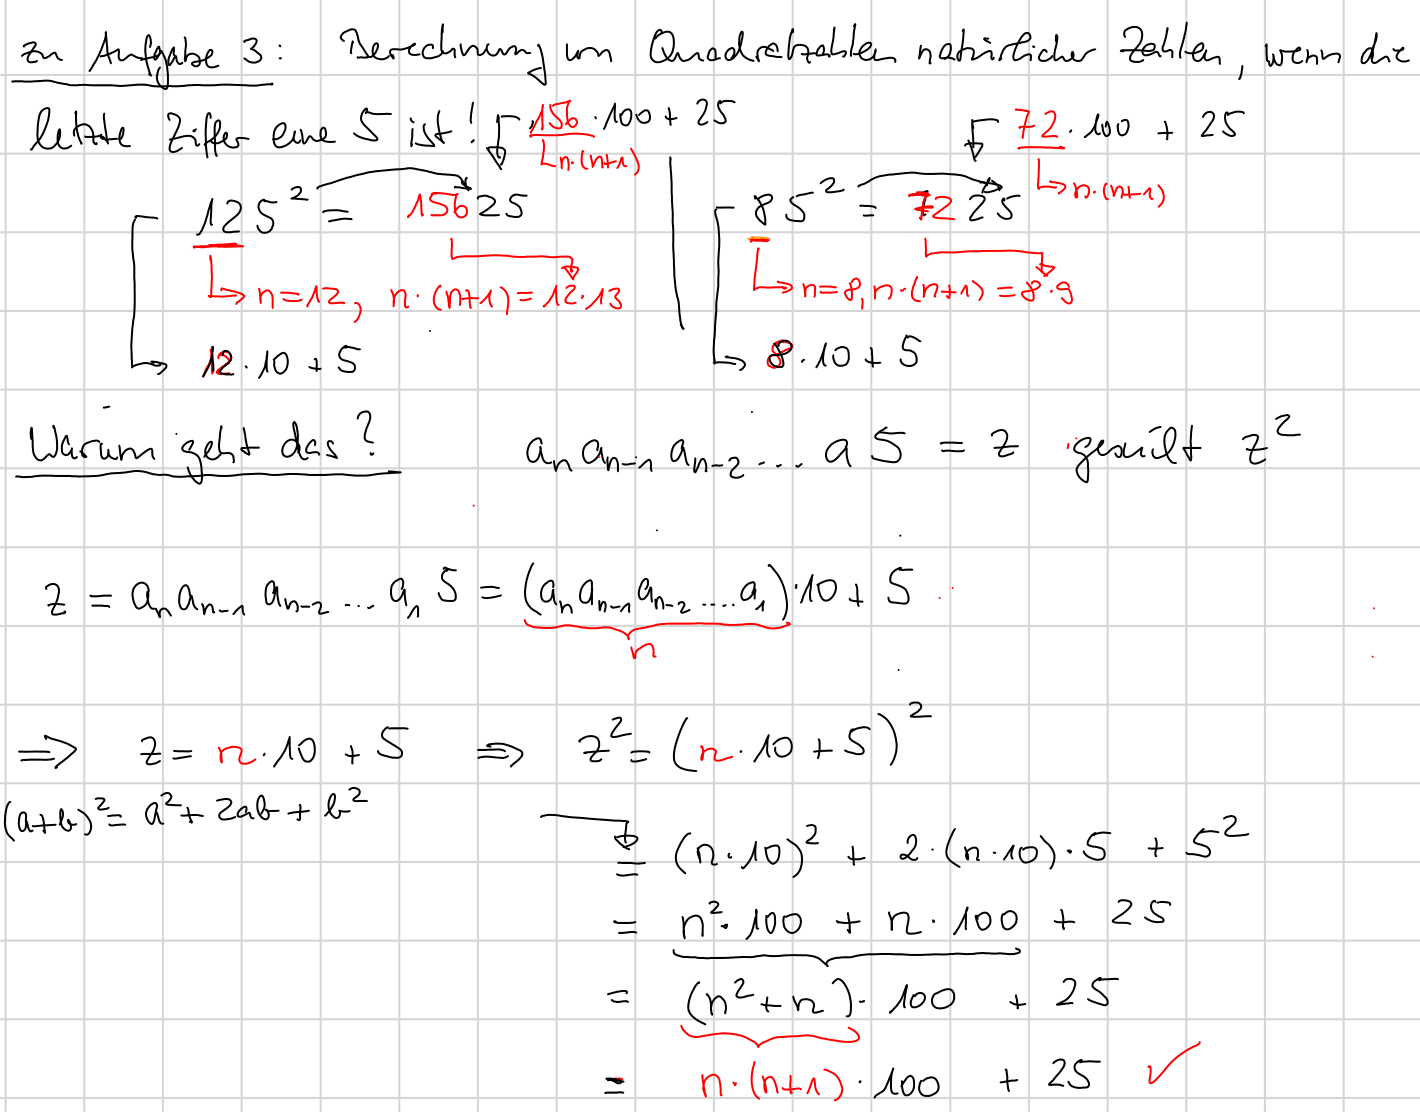 zu Aufgabe 3: Berechnung von Quadratzahlen natürlicher Zahlen, wenn die
letzte Ziffer eine 5 ist!
156 · 100 + 25
n·(n+1)
125² = 15625
n=12, n·(n+1)=12·13
12·10 + 5
72 · 100 + 25
n·(n+1)
85² = 7225
n=8, n·(n+1)=8·9
8·10 + 5
Warum geht das?
aₙ aₙ₋₁ aₙ₋₂ ... a 5 = z gesucht z²
z = aₙ aₙ₋₁ aₙ₋₂ ... a₁ 5 = (aₙ aₙ₋₁ aₙ₋₂ .... a₁)·10 + 5
n
⇒ z = n·10 + 5 ⇒ z² = (n·10 + 5)²
(a+b)² = a² + 2ab + b²
= (n·10)² + 2·(n·10)·5 + 5²
= n²·100 + n·100 + 25
= (n²+n)·100 + 25
= n·(n+1)·100 + 25 ✓